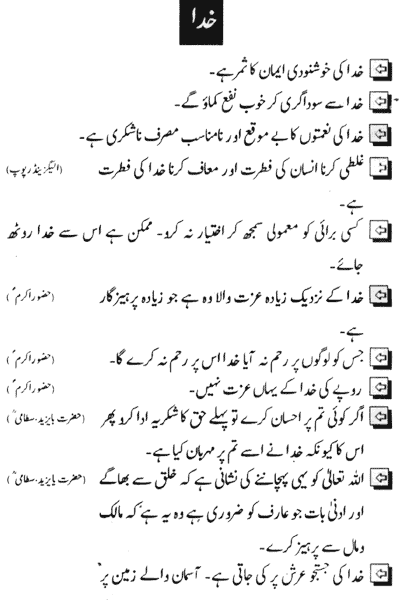 خدا
خدا کی خوشنودی ایمان کا ثمر ہے۔
خدا سے سوداگری کر خوب نفع کماؤ گے۔
خدا کی نعمتوں کا بے موقع اور نامناسب مصرف ناشکری ہے۔
غلطی کرنا انسان کی فطرت اور معاف کرنا خدا کی فطرت (الیگزینڈر پوپ)
ہے۔
کسی برائی کو معمولی سمجھ کر اختیار نہ کرو۔ ممکن ہے اس سے خدا روٹھ
جائے۔
خدا کے نزدیک زیادہ عزت والا وہ ہے جو زیادہ پرہیزگار (حضور اکرمؐ)
ہے۔
جس کو لوگوں پر رحم نہ آیا خدا اس پر رحم نہ کرے گا۔ (حضور اکرمؐ)
روپے کی خدا کے یہاں عزت نہیں۔ (حضور اکرمؐ)
اگر کوئی تم پر احسان کرے تو پہلے حق کا شکریہ ادا کرو پھر (حضرت بایزید بسطامیؒ)
اس کا کیونکہ خدا نے اسے تم پر مہربان کیا ہے۔
اللہ تعالیٰ کو یہی پہچاننے کی نشانی ہے کہ خلق سے بھاگے (حضرت بایزید بسطامیؒ)
اور ادنیٰ بات جو عارف کو ضروری ہے وہ یہ ہے کہ مالک
ومال سے پرہیز کرے۔
خدا کی جستجو عرش پر کی جاتی ہے۔ آسمان والے زمین پر